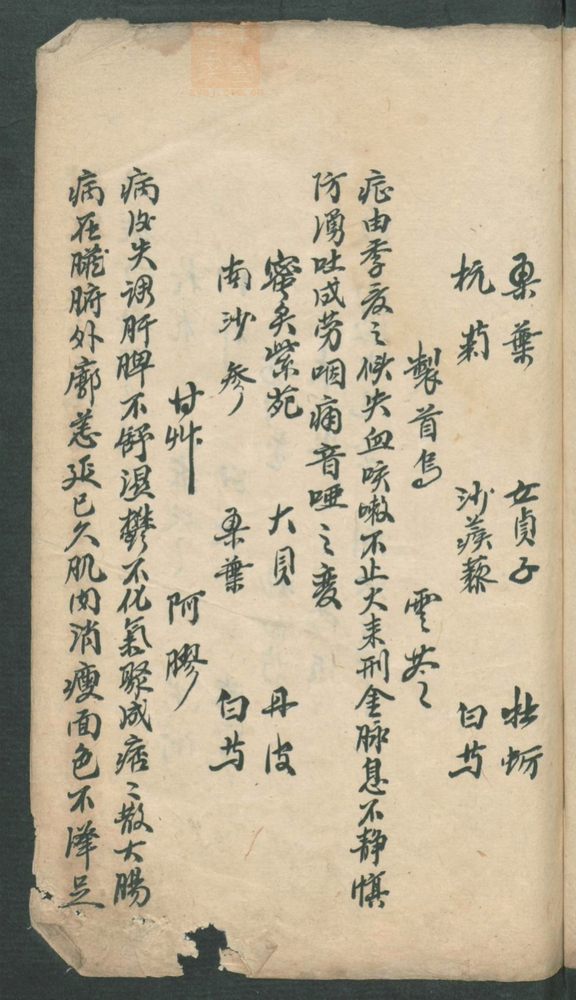 桑葉 女貞子 牡蛎
杭菊 沙蒺藜 白芍
製首烏 雲苓
症由季夏之候失血咳嗽不止火来刑金脉息不静慎
防湧吐成劳咽痛音啞之變
蜜炙紫苑 大貝 丹皮
南沙參 桑葉 白芍
甘艸 阿膠
病後失調肝脾不舒湿鬱不化氣聚成痞痞散大腸
病在臟腑外廓恙延已久肌肉消瘦面色不澤足